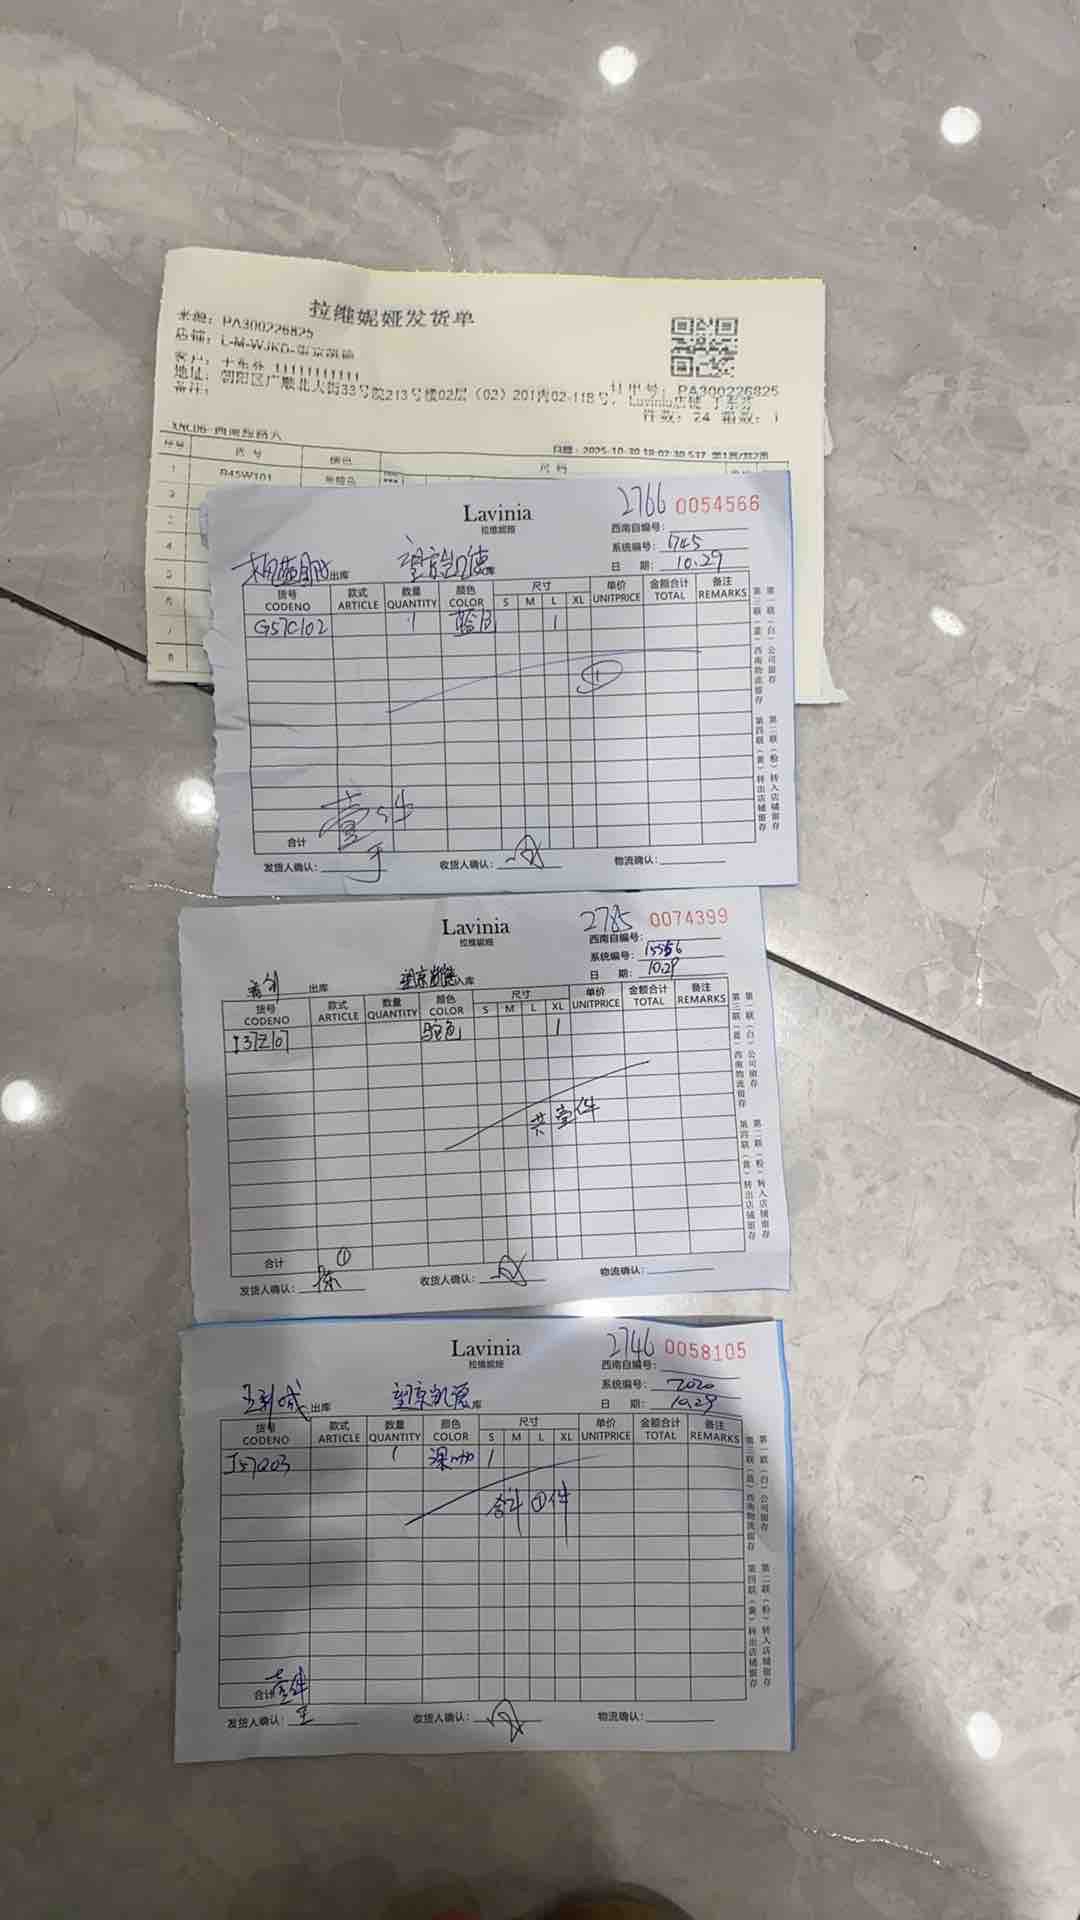 拉维妮娅发货单
来源: PA300226825
店铺: L-M-WJKD-望京凯德
客户: 于东分 11111111111
地址: 朝阳区广顺北大街33号院213号楼02层（02）201内02-11B号, Lavinia店铺
备注:
PA300226825
件数: 24 箱数: 1
日期: 2025-10-30 第1页/共2页
序号 款号 颜色 尺码
1 R45W101
2
3
4
5
6
7
8
Lavinia
拉维妮娅
2766 0054566
西南自编号:
系统编号: 1745
日 期: 10.29
出库 望京凯德 库
货号 款式 数量 颜色 尺寸 单价 金额合计 备注
CODENO ARTICLE QUANTITY COLOR S M L XL UNITPRICE TOTAL REMARKS
G57C102 1 蓝白 1
1
合计 壹件
发货人确认: 于 收货人确认: 物流确认:
第一联（白）公司留存
第二联（粉）转入店铺留存
第三联（蓝）西南物流留存
第四联（黄）转出店铺留存
Lavinia
拉维妮娅
2785 0074399
西南自编号:
系统编号: 15556
日 期: 10.29
出库 望京凯德 入库
货号 款式 数量 颜色 尺寸 单价 金额合计 备注
CODENO ARTICLE QUANTITY COLOR S M L XL UNITPRICE TOTAL REMARKS
I37Z107 驼色 1
共壹件
合计 ①
发货人确认: 陈 收货人确认: 物流确认:
第一联（白）公司留存
第二联（粉）转入店铺留存
第三联（蓝）西南物流留存
第四联（黄）转出店铺留存
Lavinia
拉维妮娅
2746 0058105
西南自编号:
系统编号: 7020
日 期: 10.29
出库 望京凯德 库
货号 款式 数量 颜色 尺寸 单价 金额合计 备注
CODENO ARTICLE QUANTITY COLOR S M L XL UNITPRICE TOTAL REMARKS
I57Q03 1 深咖 1
合计①件
合计 壹件
发货人确认: 王 收货人确认: 物流确认:
第一联（白）公司留存
第二联（粉）转入店铺留存
第三联（蓝）西南物流留存
第四联（黄）转出店铺留存